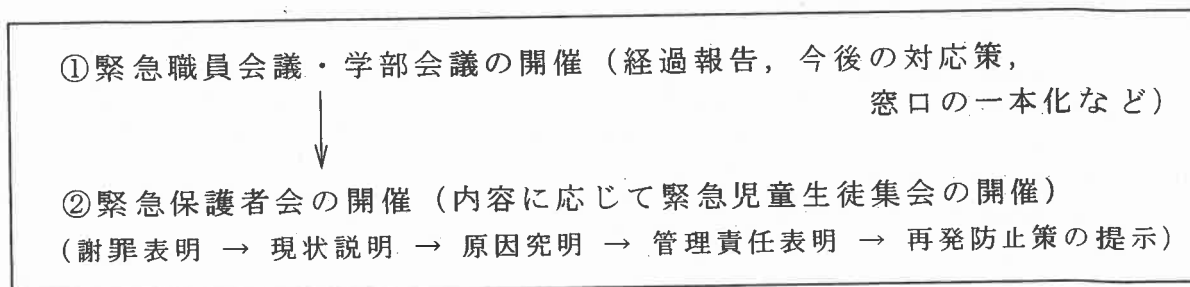 ①緊急職員会議・学部会議の開催（経過報告，今後の対応策，
窓口の一本化など）
②緊急保護者会の開催（内容に応じて緊急児童生徒集会の開催）
（謝罪表明 → 現状説明 → 原因究明 → 管理責任表明 → 再発防止策の提示）